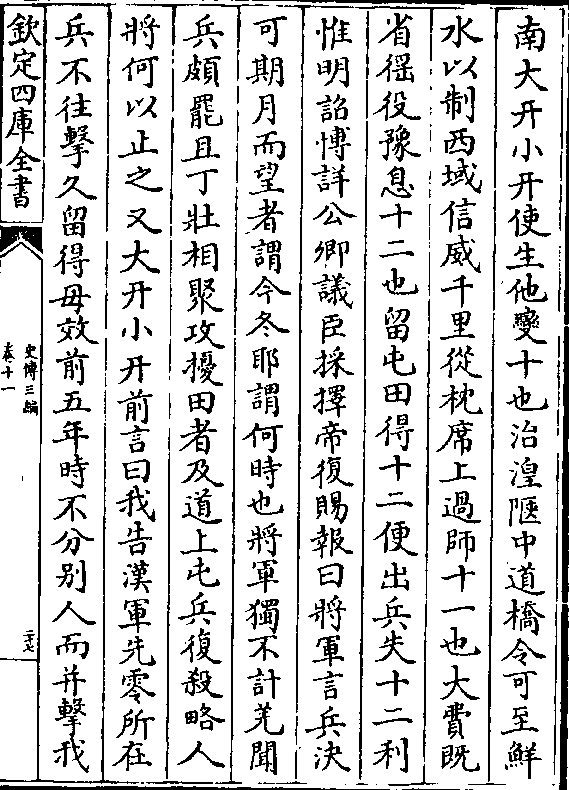 南大幵小幵使生他變十也治湟陿中道橋令可至鮮
水以制西域信威千里從枕席上過師十一也大費既
省徭役豫息十二也留屯田得十二便出兵失十二利
惟明詔博詳公卿議臣採擇帝復賜報曰將軍言兵決
可期月而望者謂今冬耶謂何時也將軍獨不計羌聞
兵頗罷且丁壯相聚攻擾田者及道上屯兵復殺略人
將何以止之又大幵小幵前言曰我告漢軍先零所在
兵不往擊久留得毋效前五年時不分别人而并擊我
欽定四庫全書
史傳三編
卷十一
二十七